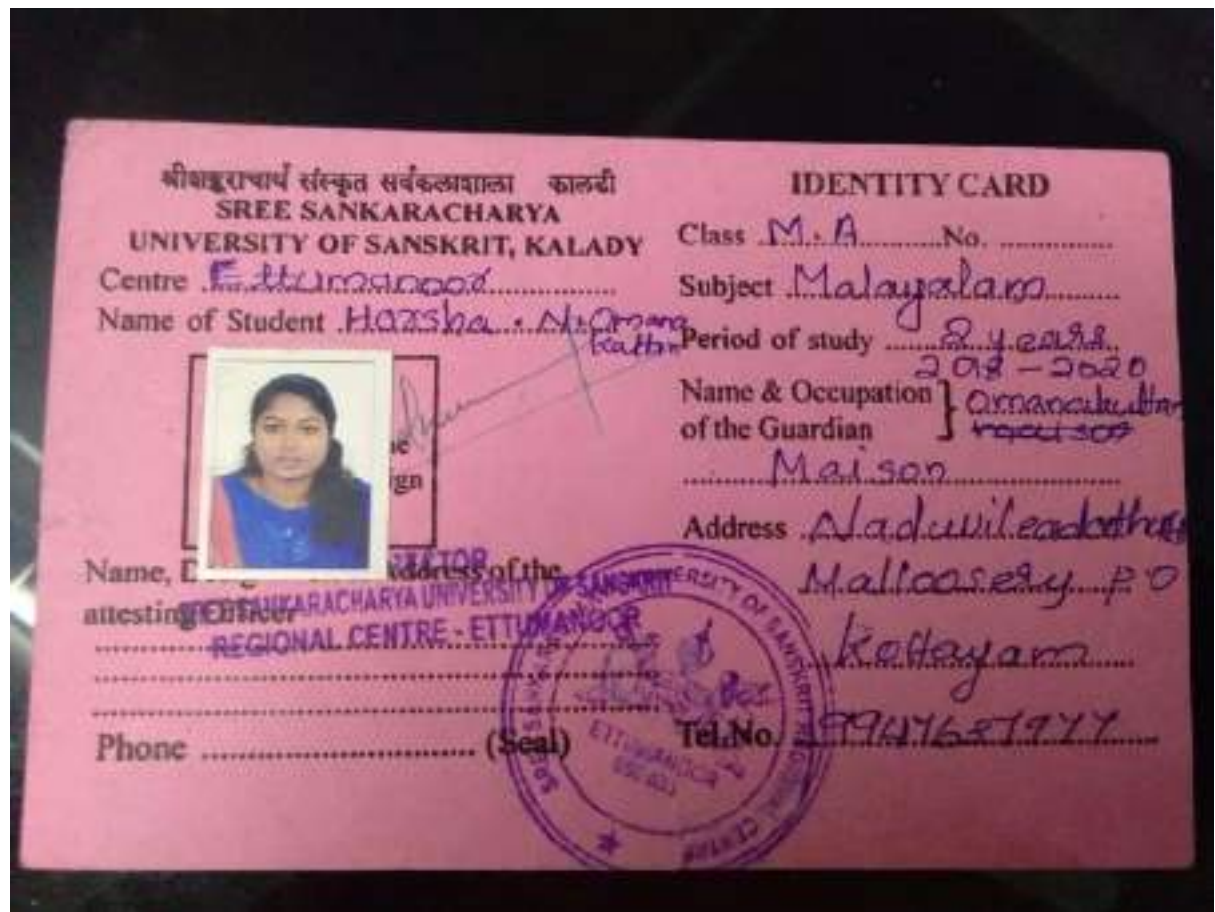 श्रीशङ्कराचार्य संस्कृत सर्वकलाशाला कालटी
SREE SANKARACHARYA
UNIVERSITY OF SANSKRIT, KALADY
Centre Ettumanoor
Name of Student Harsha . N. Omana
kuttan
ne
ign
Name, Address of the
attesting Officer
SANKARACHARYA UNIVERSITY OF SANSKRIT
REGIONAL CENTRE - ETTUMANOOR
Phone (Seal)
IDENTITY CARD
Class M.A No.
Subject Malayalam
Period of study 2 years
2018 - 2020
Name & Occupation Omanakuttan
of the Guardian
Maison
Address
Malloosery P O
Kottayam
Tel.No.
UNIVERSITY OF SANSKRIT REGIONAL CENTRE
ETTUMANOOR